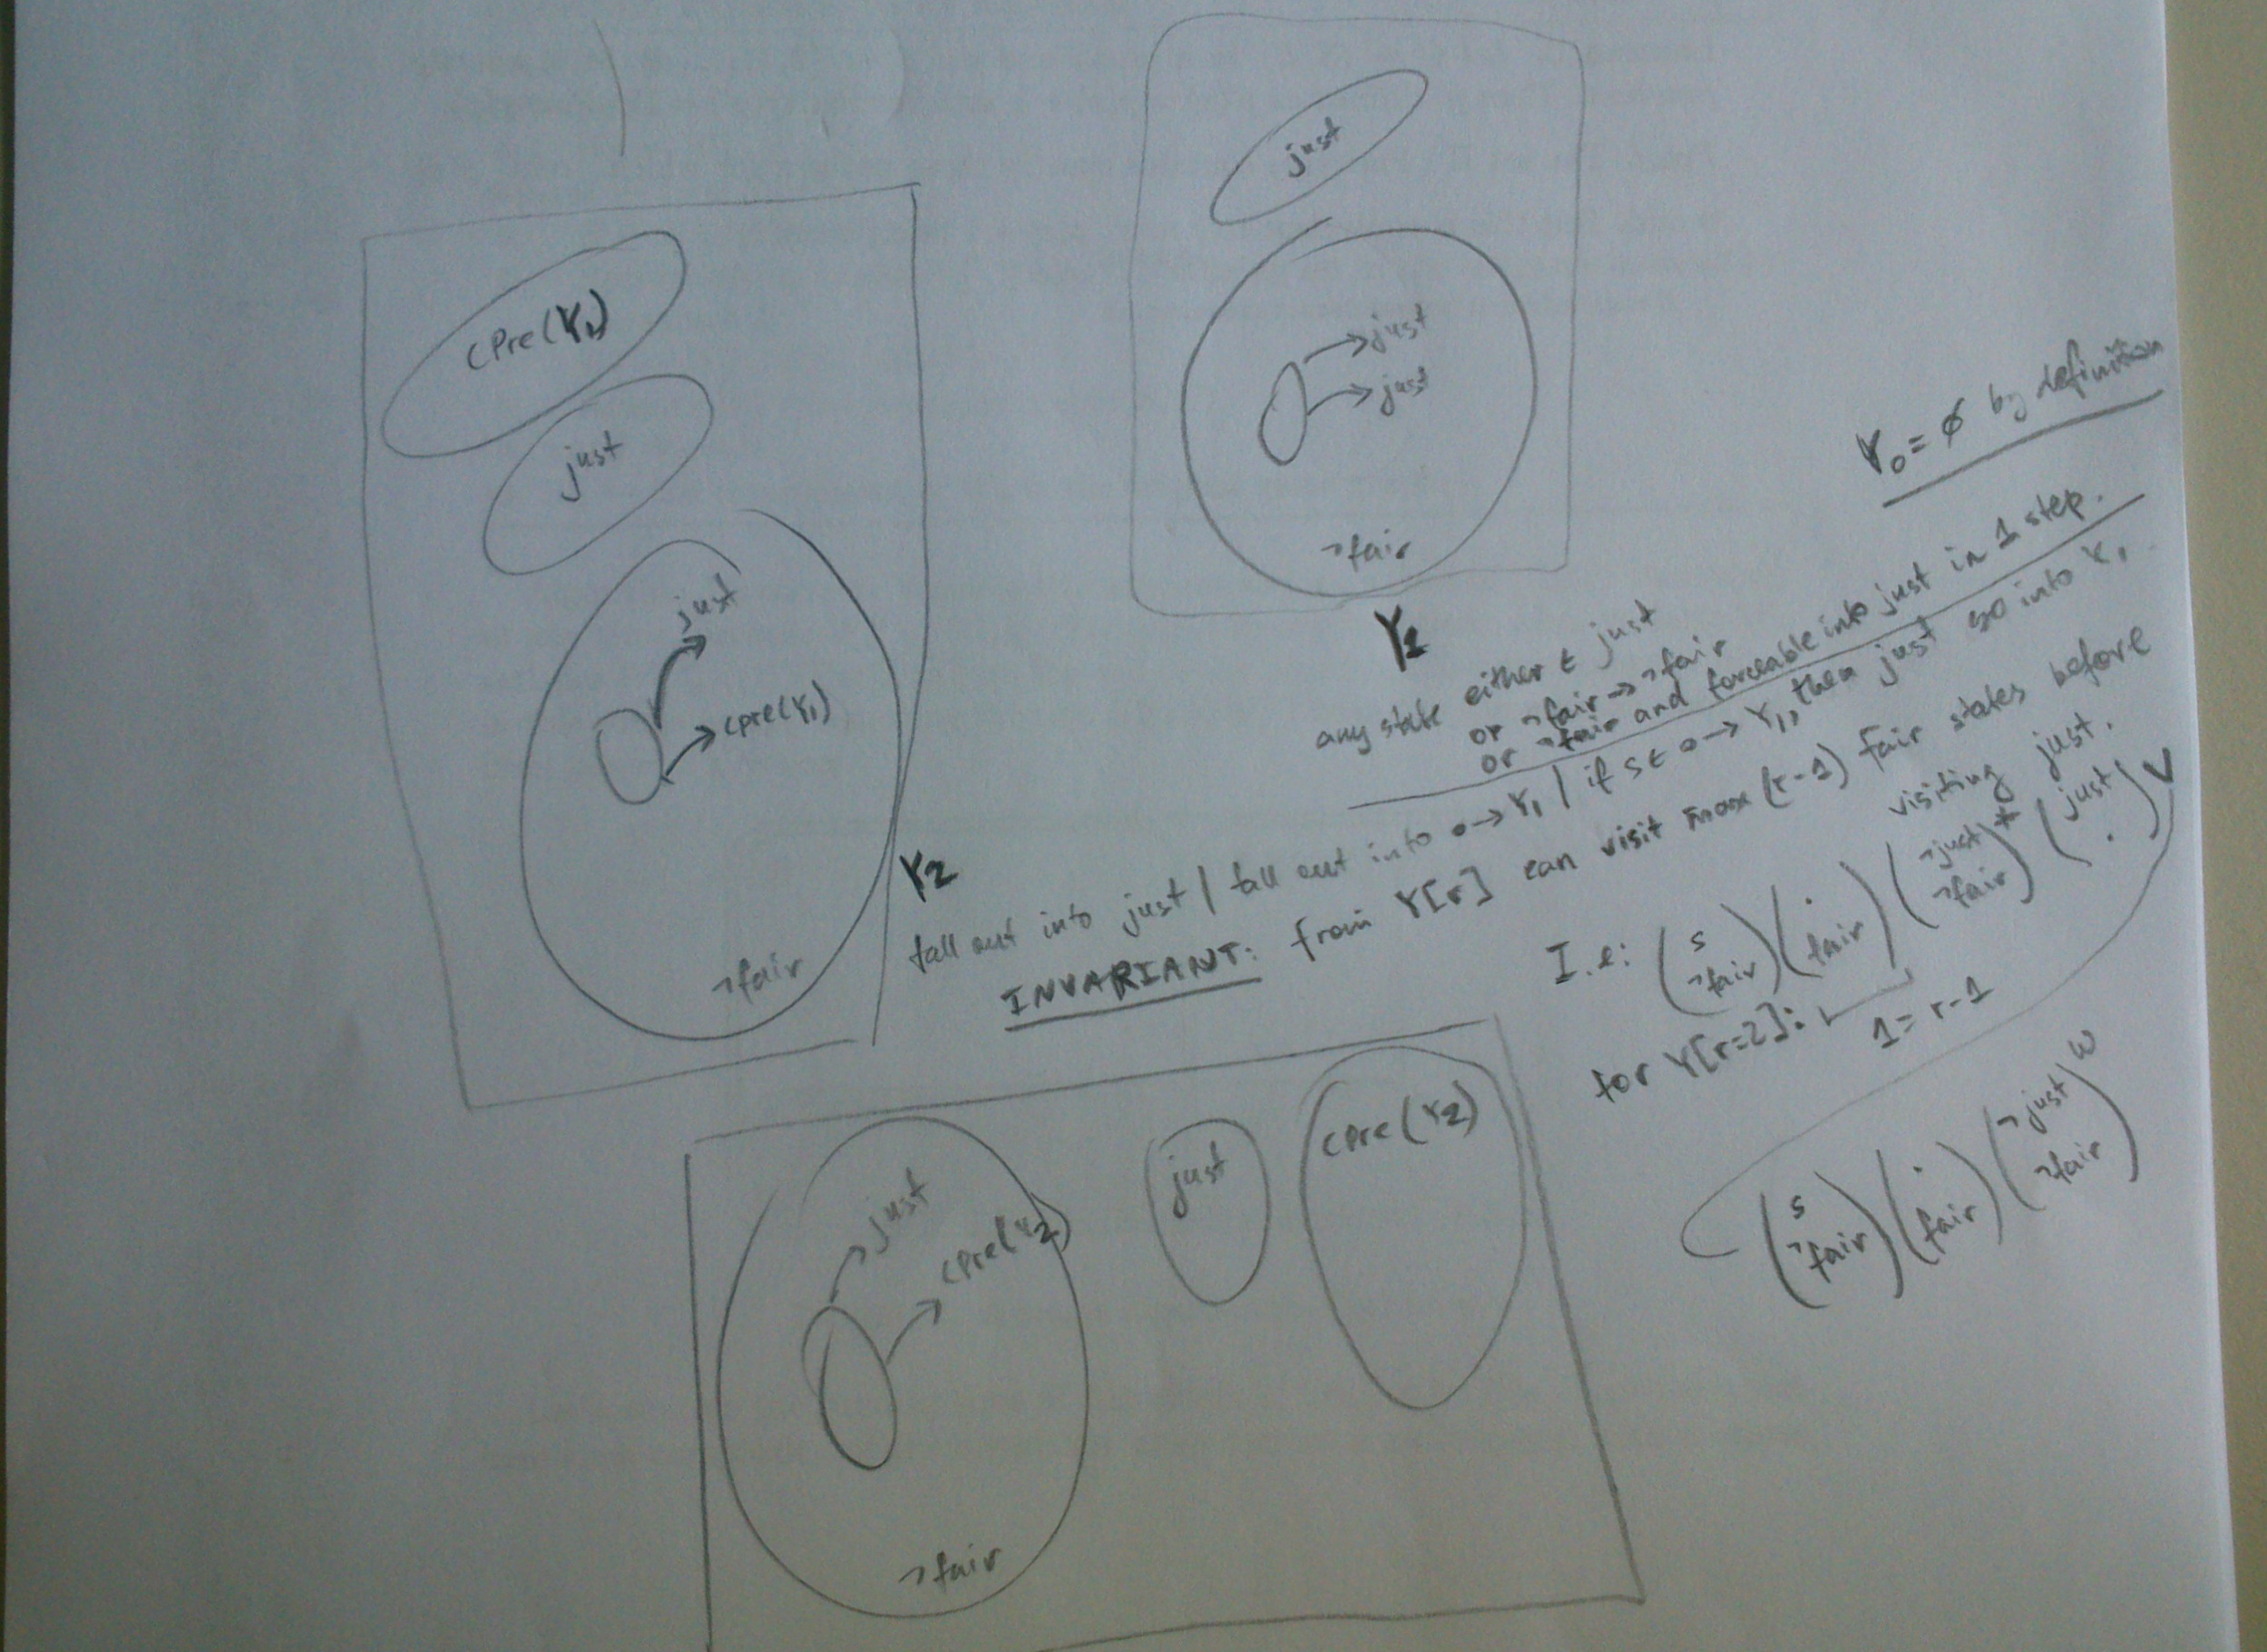 just
just
just
¬fair
Y1
cPre(Y1)
just
just
cpre(Y1)
¬fair
Y2
Y0 = ∅ by definition
any state either ∈ just
or ¬fair → ¬fair
or ¬fair and forceable into just in 1 step.
fall out into just | fall out into o→ Y1 | if s ∈ o→ Y1, then just go into Y1.
INVARIANT: from Y[r] can visit max (r-1) fair states before
visiting just.
I.e: (s ¬fair)(· fair)(¬just ¬fair)* (just ·) ∨
for Y[r=2]: 1 = r-1
(s ¬fair)(· fair)(¬just ¬fair)ω
just
cpre(Y2)
¬fair
just
cPre(Y2)